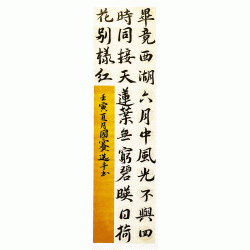 畢竟西湖六月中風光不與四
時同接天蓮葉無窮碧暎日荷
花别樣紅
壬寅夏月國賽